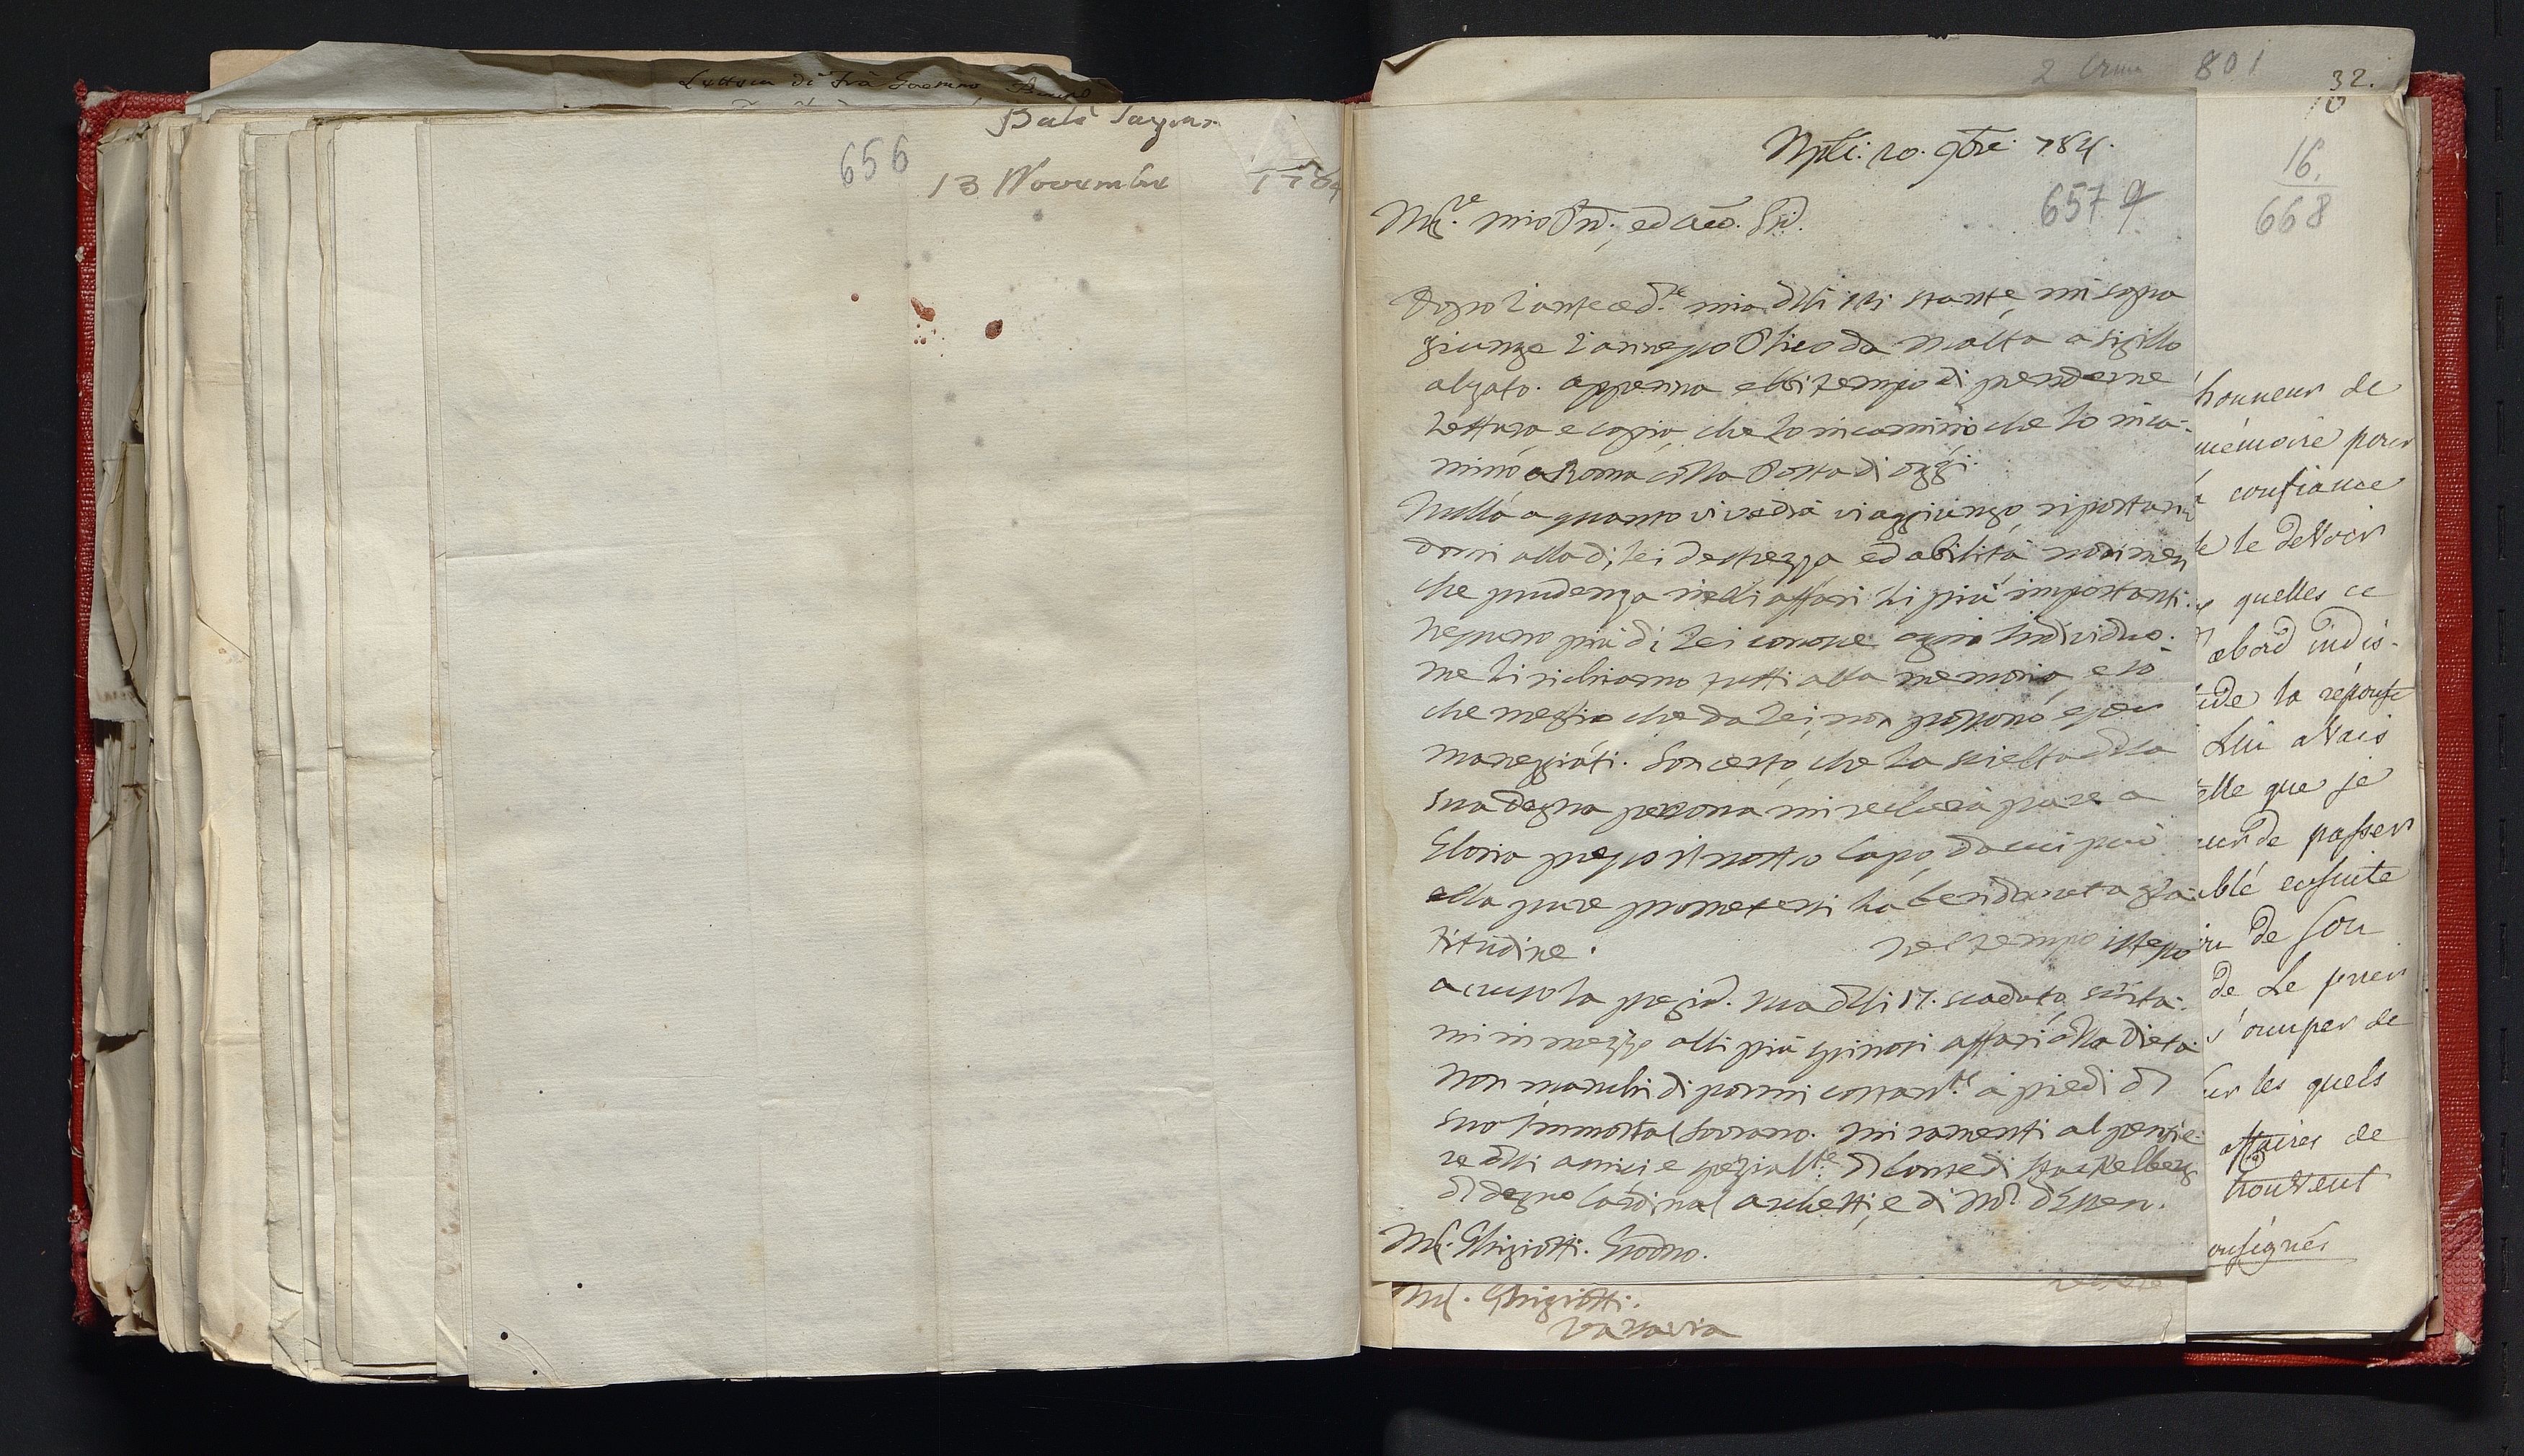 Lettera di Frà Gaetano Bruno
Balì Sagra
656
13 Novembre 1784
2 801
32.
10
16.
668
Npli: 20. 9bre: 784.
657
mio Prõ., ed Amõ.
Dopo l'anteced.te mia delli stante, mi sopra
giunge l'annesso Plico da Malta a sigillo
alzato. appenna ebbi tempo di prenderne
lettura e copia, che lo incamino che lo inca-
minò a Roma colla Posta di oggi.
Nulla a quanto vi vedrà vi aggiungo, riportan
domi alla di lei destrezza ed abilità
che prudenza nelli affari li più importanti.
nessuno più di Lei conosce ogni Individuo.
me li richiamo tutti alla memoria, e sò
che meglio che da Lei, non possono esser
maneggiati. Son certo, che la scielta della
sua degna persona mi recherà pure a
Gloria presso il nostro Capo, da cui può
ella pure prometersi la ben dovuta gra-
titudine. nel tempo istesso
acuso la pregiat. sua delli 17. scaduto,
mi in mezzo alli più spinosi affari della Dieta
non manchi di pormi costant.te a piedi del
suo Immortal Sovrano. mi ramenti al pensie-
re delli amici e spezialt.e del Conte di Stackelberg
del degno Cardinal Archetti, e di Mr. d'Essen.
Ghigiotti. Grodno.
Ghigiotti.
Varsavia
honneur de
mémoire pour
confiance
le devoir
quelles ce
abord indis-
la réponse
Lui avais
elle que je
de passer
blé ensuite
de son
de Le prier
s'occuper de
sur les quels
affaires de
trouvent
onsignés